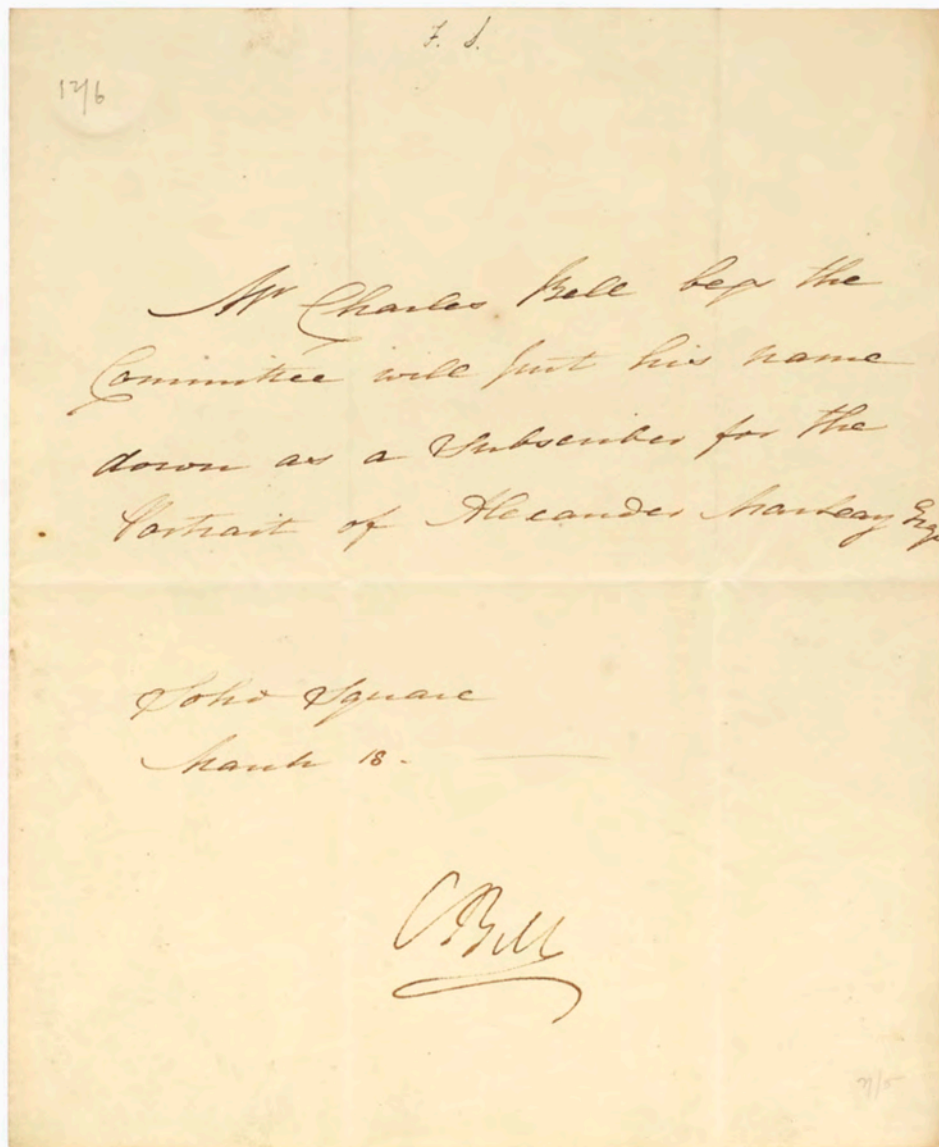 F. S.
12/6
Mr Charles Bell begs the
Committee will put his name
down as a Subscriber for the
Portrait of Alexander Macleay Esqr
Soho Square
March 18.
CBell
7/5